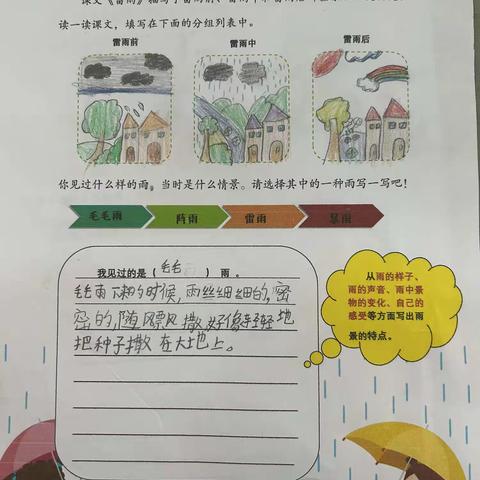 读一读课文，填写在下面的分组列表中。
雷雨前
雷雨中
雷雨后
你见过什么样的雨，当时是什么情景。请选择其中的一种雨写一写吧！
毛毛雨
阵雨
雷雨
暴雨
我见过的是（毛毛）雨。
毛毛雨下的时候，雨丝细细的，密
密的，随飘风撒好像轻轻地
把种子撒在大地上。
从雨的样子、
雨的声音、雨中景
物的变化、自己的
感受等方面写出雨
景的特点。